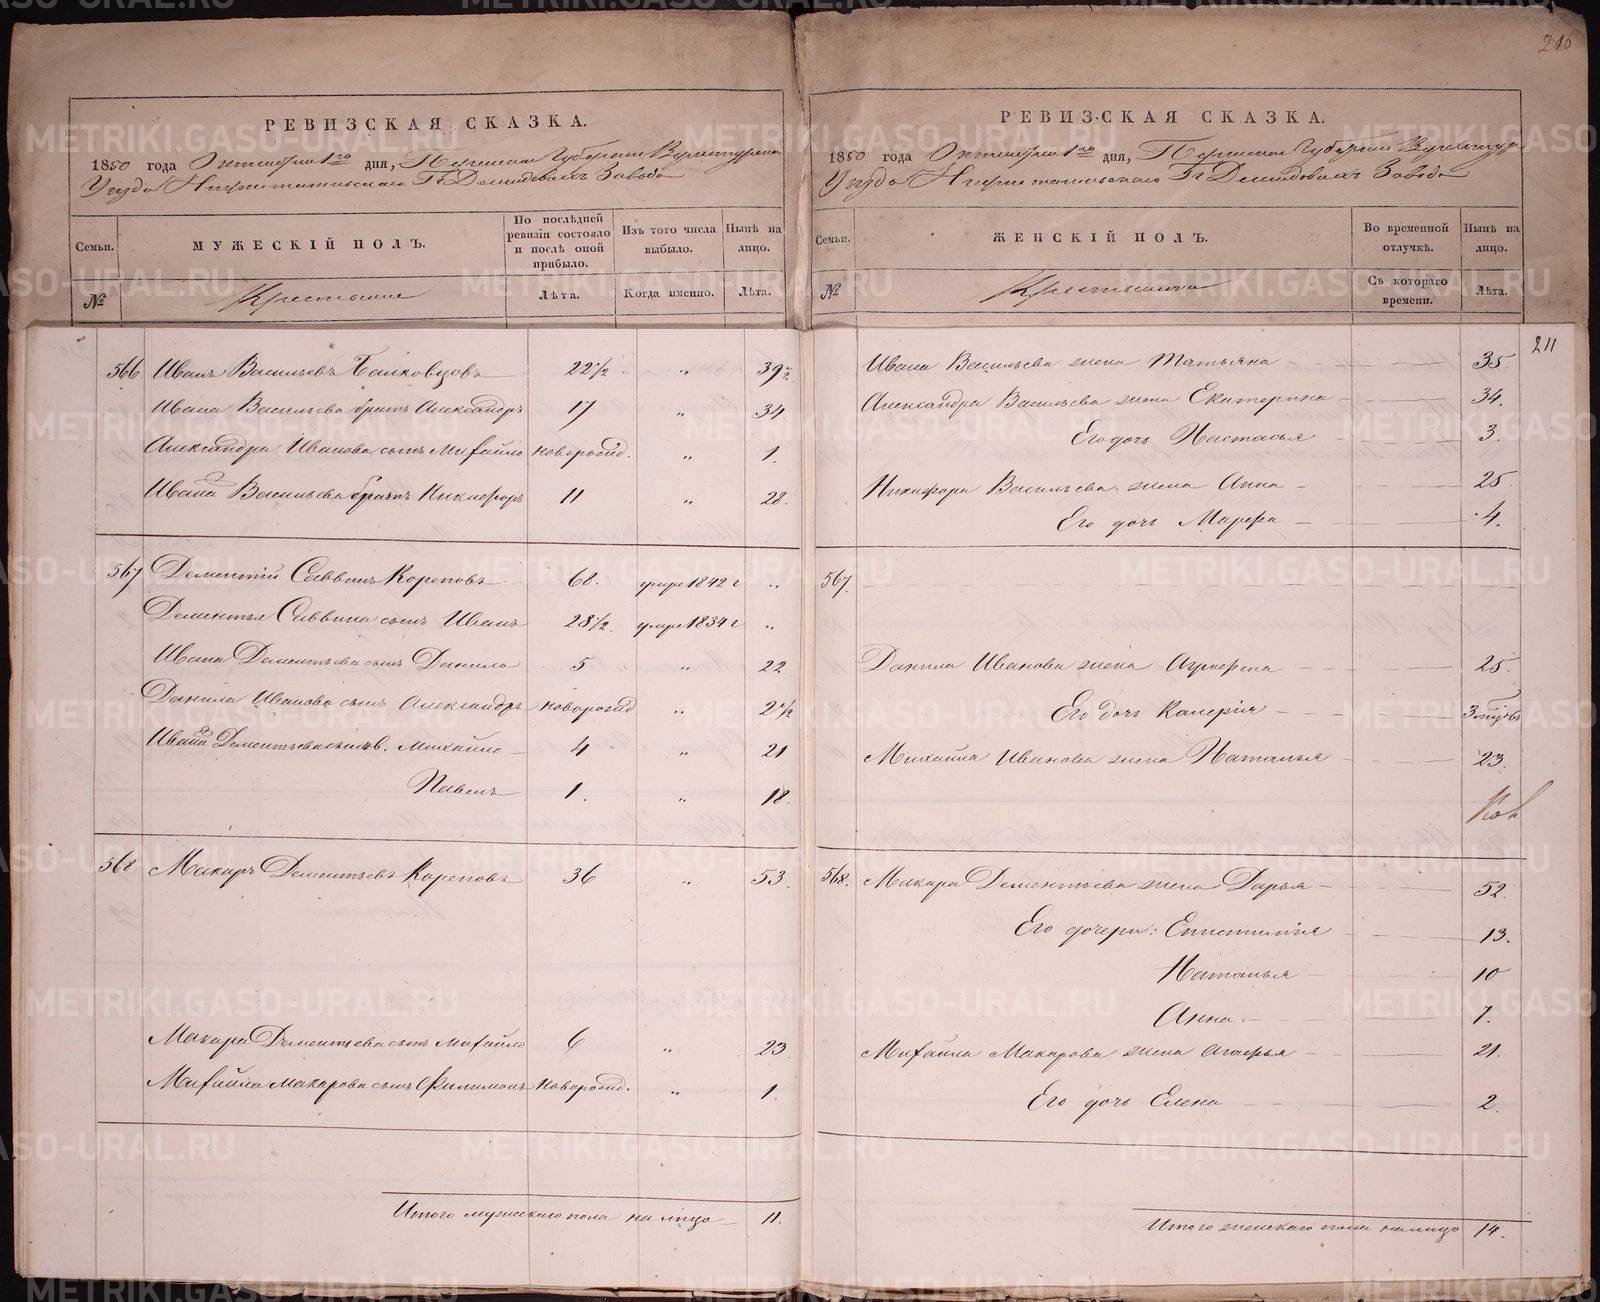 216
РЕВИЗСКАЯ СКАЗКА.
1850 года Октября 1го дня, Пермской Губернии Верхотурскаго
Уезда Нижнетагильскаго Гг Демидовыхъ Завода
Семьи.
МУЖЕСКІЙ ПОЛЪ.
По послѣдней ревизіи состояло и послѣ оной прибыло.
Изъ того числа выбыло.
Нынѣ на лицо.
№
Крестьяне
Лѣта.
Когда именно.
Лѣта.
566 Иванъ Васильевъ 22 1/2 „ 39 1/2
Ивана Васильева братъ Александръ 17 „ 34
Александра Иванова сынъ Михайло новорожд. „ 1.
Ивана Васильева братъ Никифоръ 11 „ 28.
567 Дементій Саввинъ Кореповъ 68. умре 1842 г „
Дементья Саввина сынъ Иванъ 28 1/2 умре 1834 г „
Ивана Дементьева сынъ Данило 5 „ 22
Данила Иванова сынъ Александръ новорожд „ 2 1/2
Ивана Дементьева сынов. Михайло 4 „ 21
Павелъ 1. „ 18.
568 Макаръ Дементьевъ Кореповъ 36 „ 53.
Макара Дементьева сынъ Михайло 6 „ 23
Михайла Макарова сынъ Филимонъ новорожд. „ 1.
Итого мужескаго пола на лицо 11.
РЕВИЗСКАЯ СКАЗКА.
1850 года Октября 1го дня, Пермской Губерніи Верхотурскаго
Уезда Нижнетагильскаго Гг Демидовыхъ Завода
Семьи.
ЖЕНСКІЙ ПОЛЪ.
Во временной отлучкѣ.
Нынѣ на лицо.
№
Крестьянки
Съ котораго времени.
Лѣта.
211
Ивана Васильева жена Татьяна 35
Александра Васильева жена Екатерина 34.
Его дочь Настасья 3.
Никифора Васильева жена Анна 25
Его дочь Марфа 4.
567.
Данила Иванова жена Аграфена 25.
Его дочь Калерія 3
Михайла Иванова жена Наталья 23.
568. Макара Дементьева жена Дарья 52.
Его дочери: Епистимія 13.
Наталья 10
Анна 7.
Михайла Макарова жена Агафья 21.
Его дочь Елена 2.
Итого женскаго пола на лицо 14.
METRIKI.GASO-URAL.RU